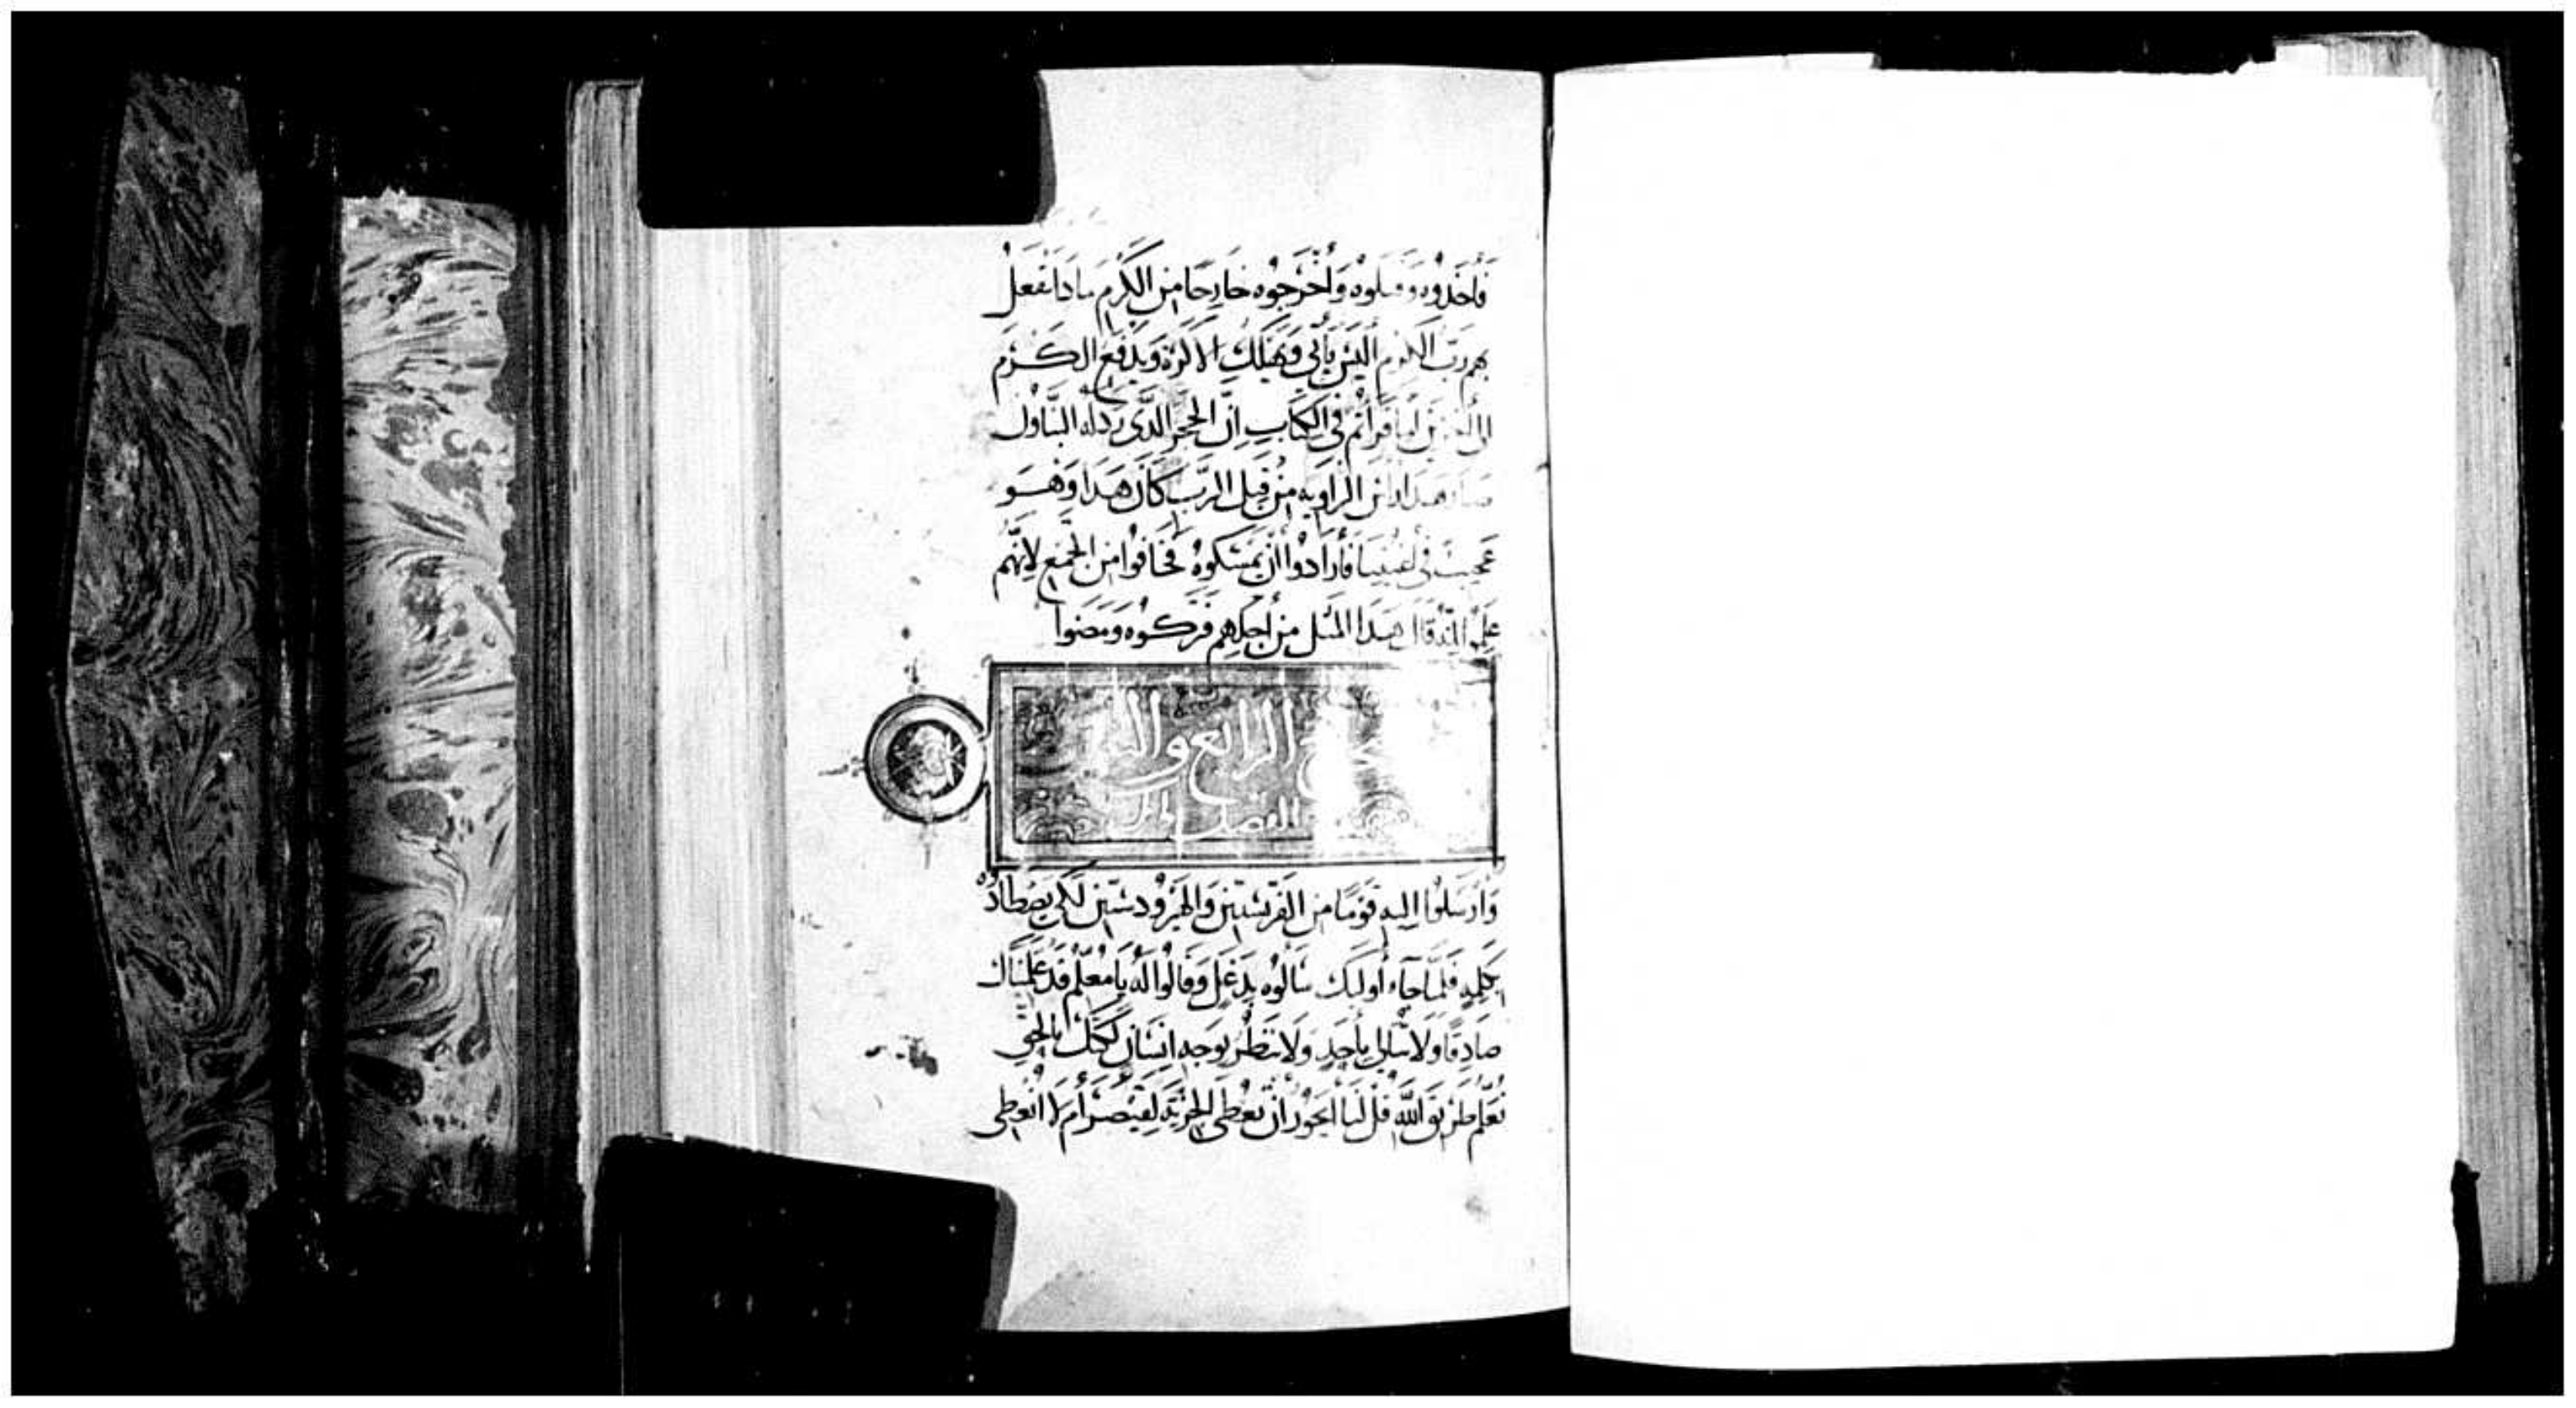 فَأَخَذُوهُ وَقتلُوهُ وَأَخْرَجُوه خَارِجًا مِنَ الكَرْمِ مَاذَا يَفْعَلُ
بهم ربّ الكرم أليسَ يَأتي وَيُهلِكُ الأكَرَةَ وَيَدفَع الكَرْم
إلى آخرين أما قَرَأتُم في الكِتَابِ إنَّ الحَجَرَ الذَّى رَدلَهُ البَنَّاوُن
صَارَ هذا راس الزاوِيه مِنْ قِبَل الرَبِّ كَانَ هَذا وَهُوَ
عَجيبٌ في أعيُنِنَا فَأرَادُوا أنْ يُمسِكوهُ فَخافُوا مِنَ الجَمْعِ لأنَّهُم
عَلِمُوا أنّهُ قَال هَذا المَثَل مِنْ أجلِهِم فتركوه ومَضَوا
الرابع وال
الفصل
وَأَرسَلُوا إليه قَومًا مِنَ الفَرّيسيّينَ وَالهِيرُودسيّين لكَى يَصْطَادُوه
بكَلِمَةٍ فَلمَّا جَاء أُولَيكَ سَألُوه بِدَغَلٍ وَقَالُوا لَهُ يَا مُعَلّم قَد عَلِمنَا أنك
صَادِقًا ولا تُبَالِي بِأحَدٍ وَلا تنظُر بوَجهِ إنسَانٍ لَكنّك بالحَقِّ
تُعَلّم طَريقَ اللّه قُل لَنَا أيَجُوزُ أنْ نُعْطِي الجِزيَة لِقَيْصَرَ أم لا أنعُطِي